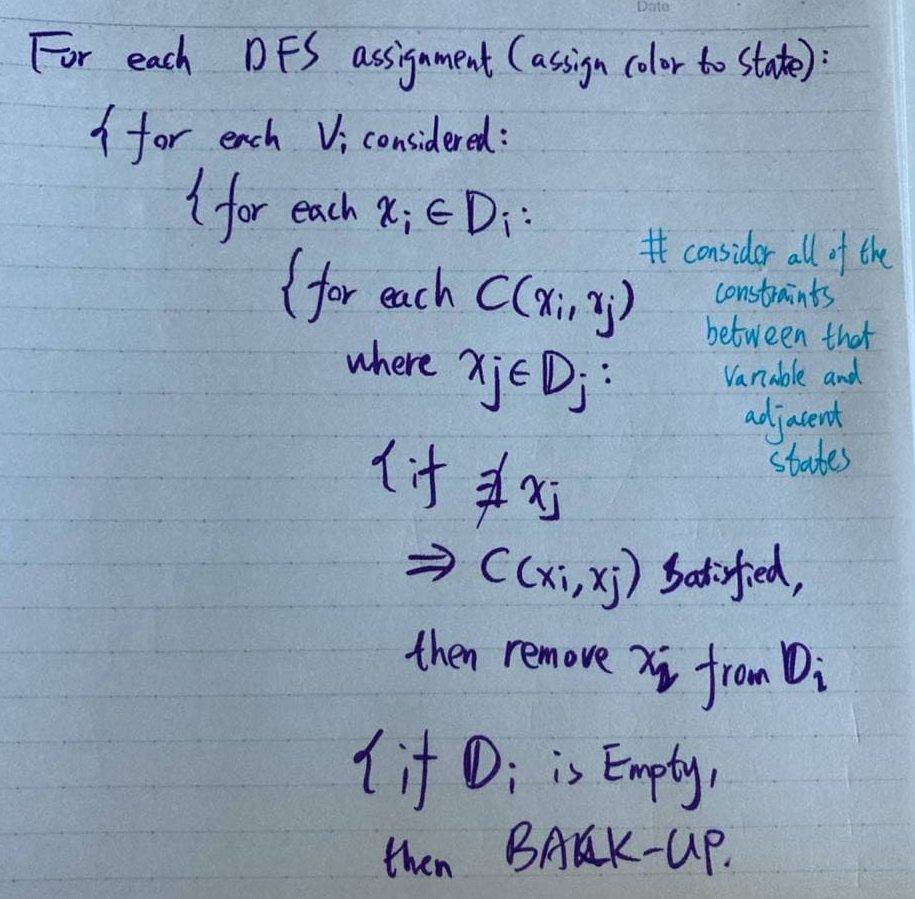 Date
For each DFS assignment (assign color to state):
{ for each Vi considered:
{ for each xi ∈ Di:
{ for each C(xi, xj)
where xj ∈ Dj:
# consider all of the
constraints
between that
variable and
adjacent
states
{ if ∄ xj
⇒ C(xi, xj) satisfied,
then remove xi from Di
{ if Di is Empty,
then BACK-UP.